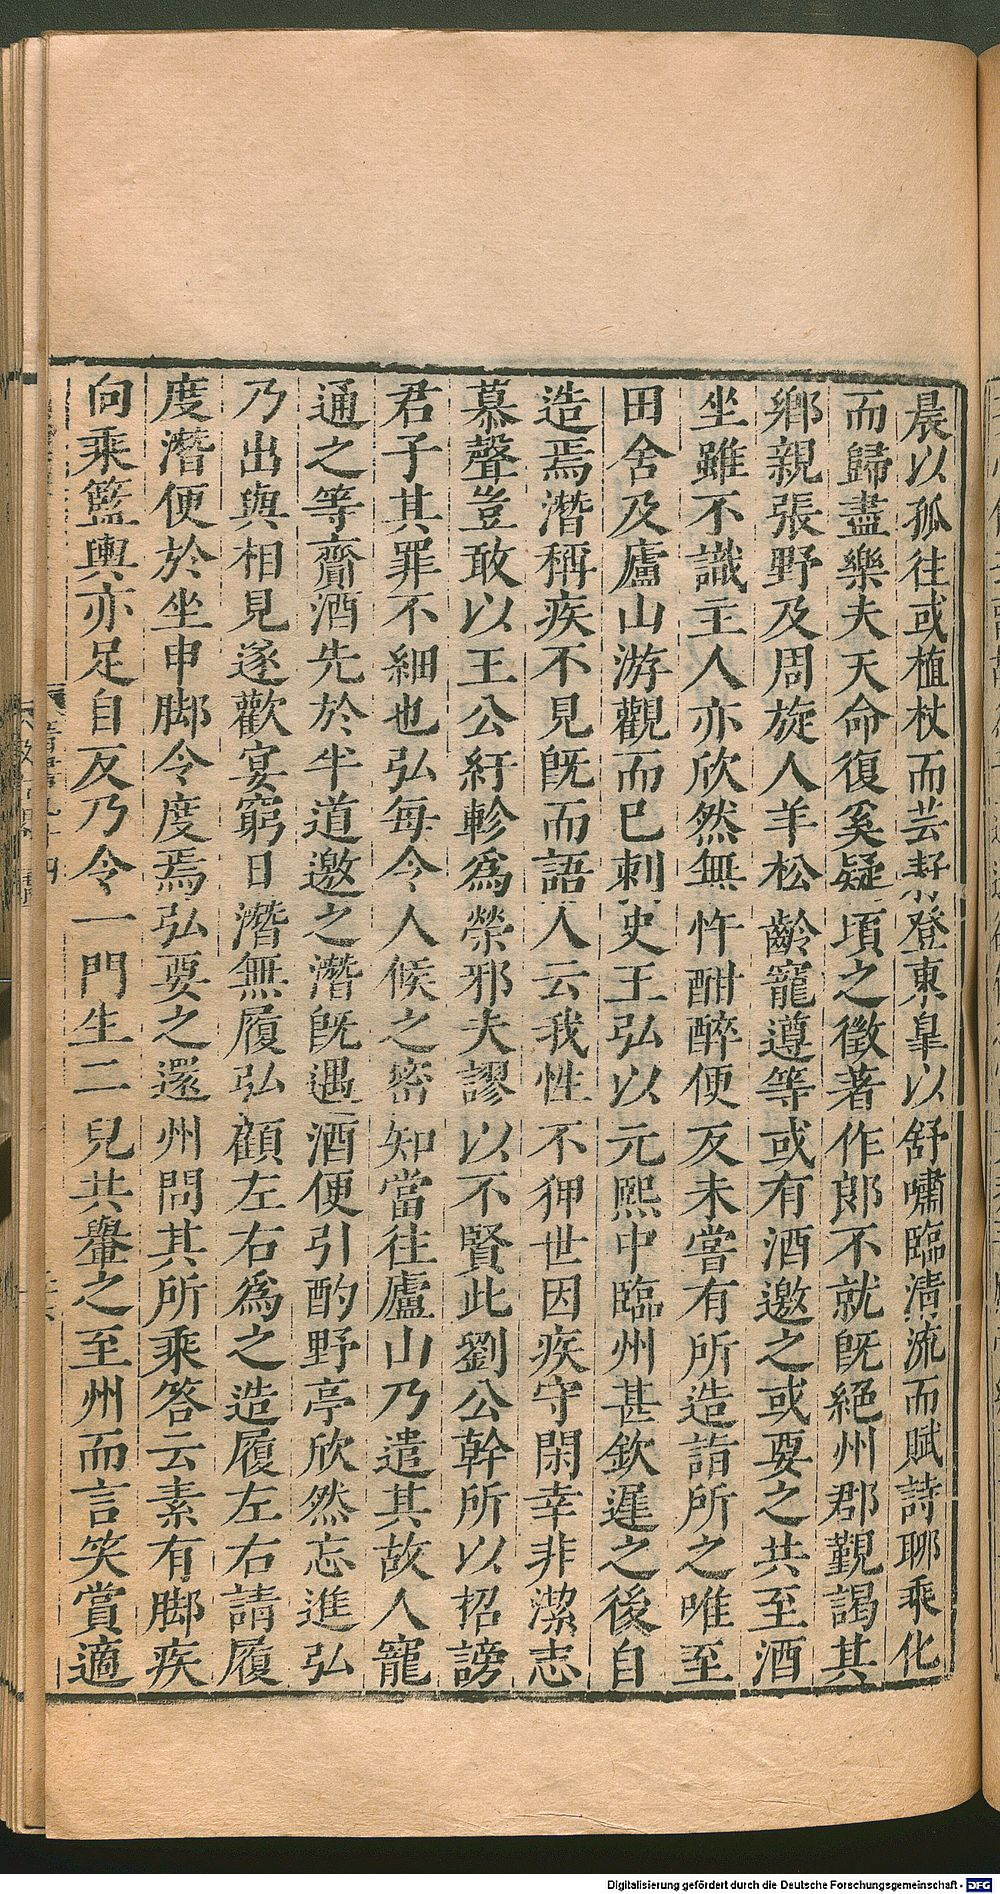 晨以孤往或植杖而芸耔登東皐以舒嘯臨清流而賦詩聊乘化
而歸盡樂夫天命復奚疑頃之徵著作郎不就旣絕州郡覲謁其
鄉親張野及周旋人羊松齡寵遵等或有酒邀之或要之共至酒
坐雖不識主人亦欣然無忤酣醉便反未嘗有所造詣所之唯至
田舍及廬山游觀而已刺史王弘以元熙中臨州甚欽遲之後自
造焉潛稱疾不見旣而語人云我性不狎世因疾守閑幸非潔志
慕聲豈敢以王公紆軫爲榮邪夫謬以不賢此劉公幹所以招謗
君子其罪不細也弘每令人候之密知當往廬山乃遣其故人寵
通之等齎酒先於半道邀之潛旣遇酒便引酌野亭欣然忘進弘
乃出與相見遂歡宴窮日潛無履弘顧左右爲之造履左右請履
度潛便於坐申脚令度焉弘要之還州問其所乘答云素有脚疾
向乘籃輿亦足自反乃令一門生二兒共轝之至州而言笑賞適
Digitalisierung gefördert durch die Deutsche Forschungsgemeinschaft - DFG